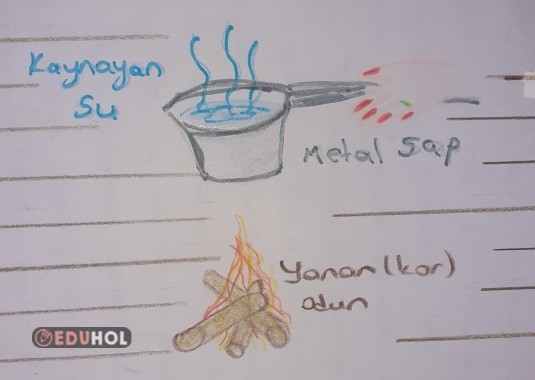 Kaynayan
Su
Metal Sap
Yanan (kor)
odun
EDUHOL